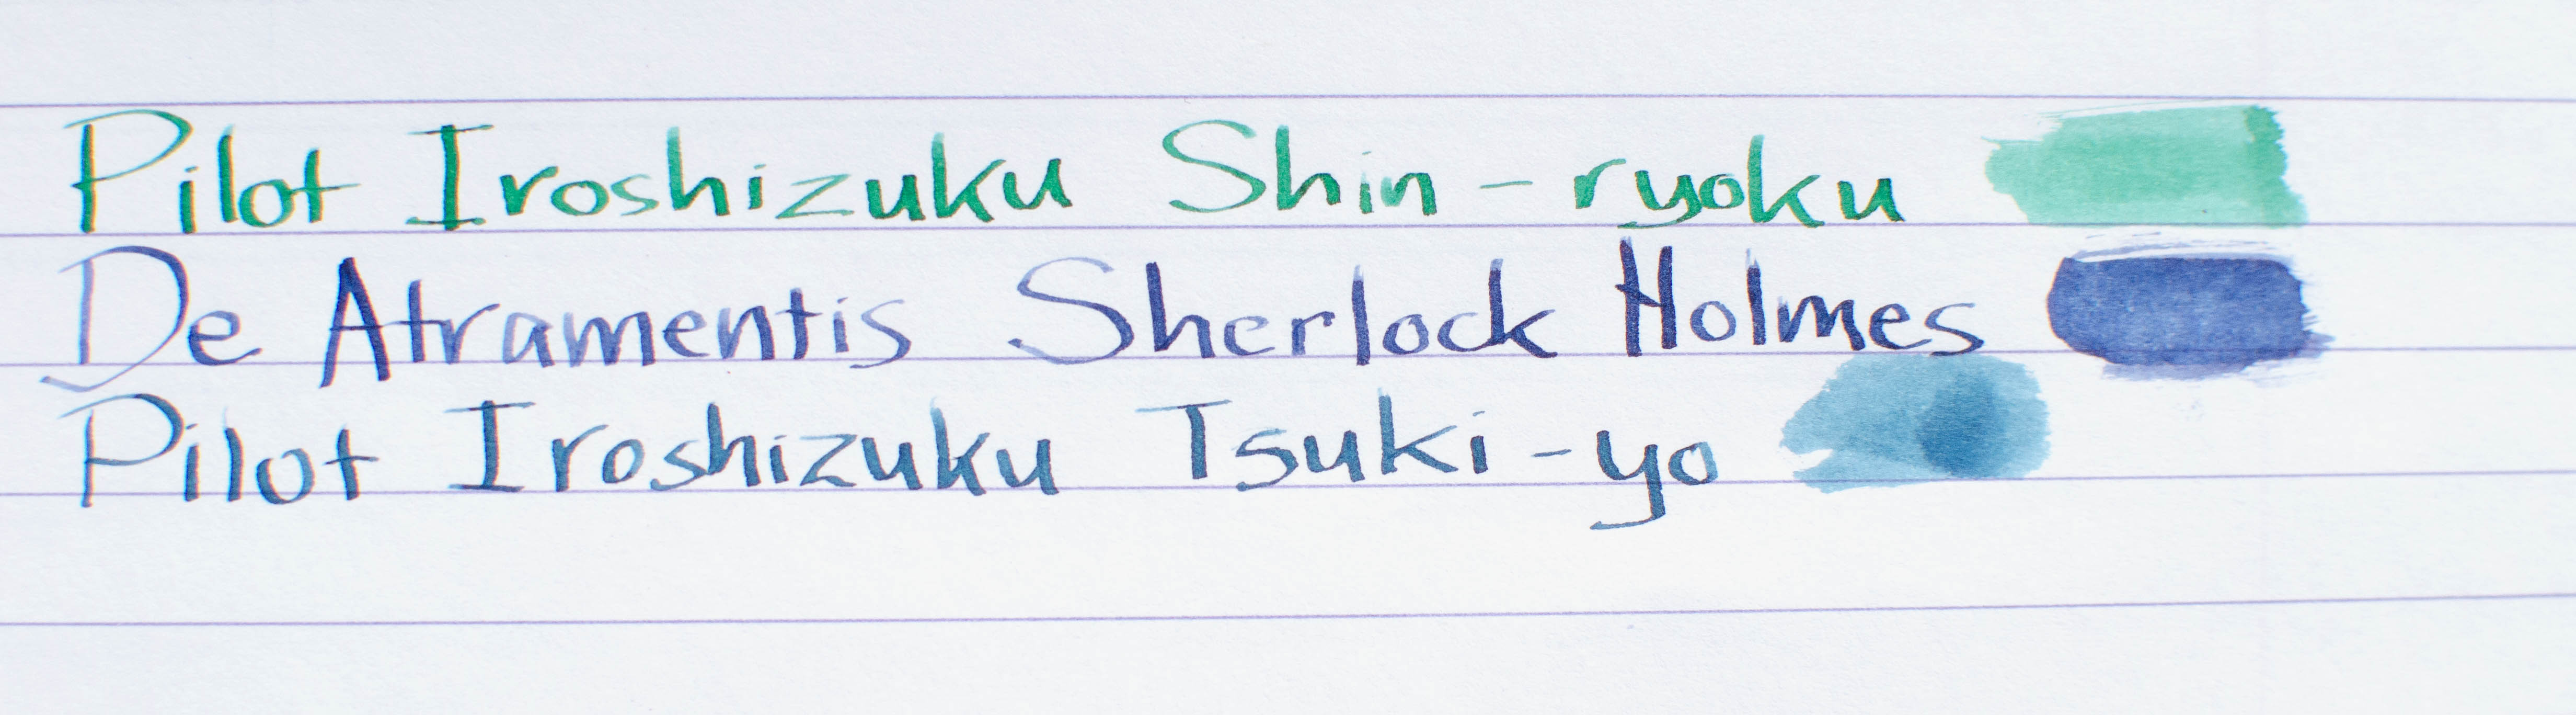 Pilot Iroshizuku Shin-ryoku
De Atramentis Sherlock Holmes
Pilot Iroshizuku Tsuki-yo